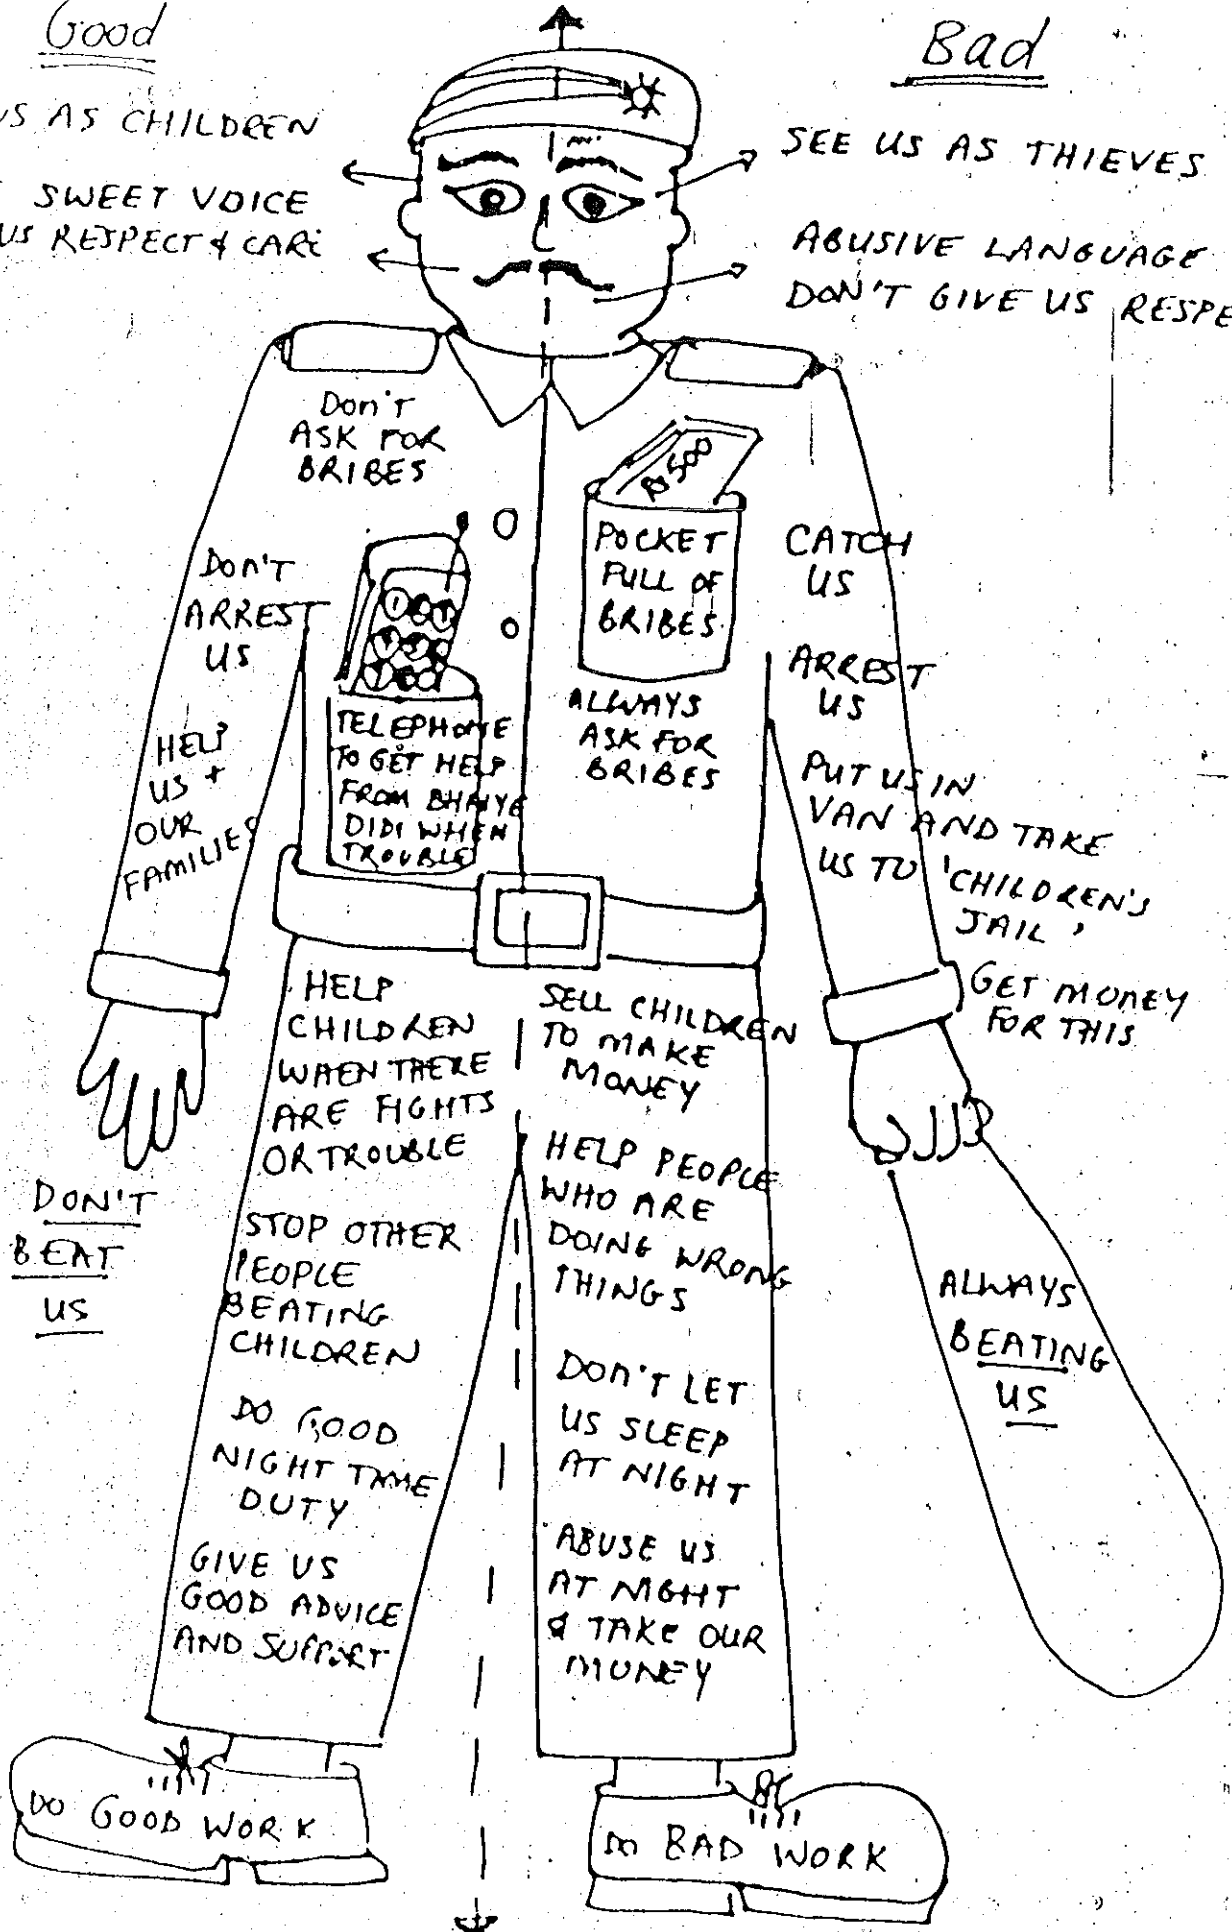 Good
US AS CHILDREN
SWEET VOICE
US RESPECT & CARE
Don't
ASK FOR
BRIBES
DON'T
ARREST
US
HELP
US +
OUR
FAMILIES
TELEPHONE
TO GET HELP
FROM BHAIYE
DIDI WHEN
TROUBLE
HELP
CHILDREN
WHEN THERE
ARE FIGHTS
OR TROUBLE
DON'T
BEAT
US
STOP OTHER
PEOPLE
BEATING
CHILDREN
DO GOOD
NIGHT TIME
DUTY
GIVE US
GOOD ADVICE
AND SUPPORT
DO GOOD WORK
Bad
SEE US AS THIEVES
ABUSIVE LANGUAGE
DON'T GIVE US RESPE
500
POCKET
FULL OF
BRIBES
ALWAYS
ASK FOR
BRIBES
CATCH
US
ARREST
US
PUT US IN
VAN AND TAKE
US TO 'CHILDREN'S
JAIL'
GET MONEY
FOR THIS
SELL CHILDREN
TO MAKE
MONEY
HELP PEOPLE
WHO ARE
DOING WRONG
THINGS
DON'T LET
US SLEEP
AT NIGHT
ABUSE US
AT NIGHT
& TAKE OUR
MONEY
ALWAYS
BEATING
US
DO BAD WORK